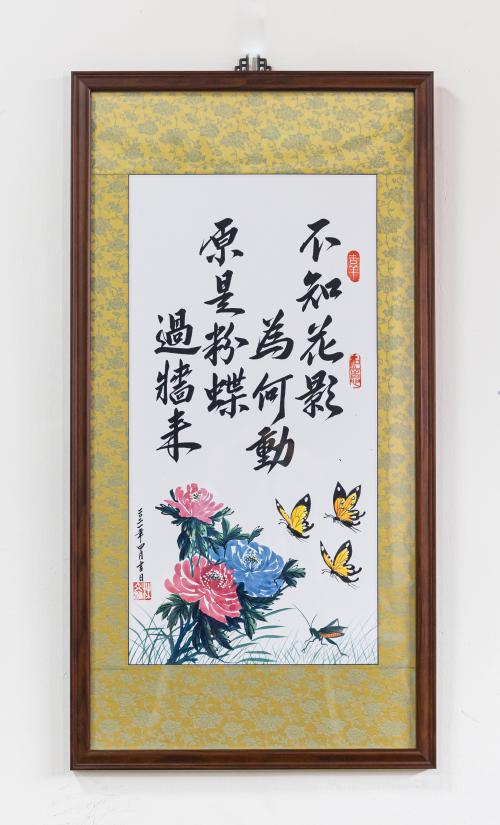 不知花影
為何動
原是粉蝶
過牆來
吉羊